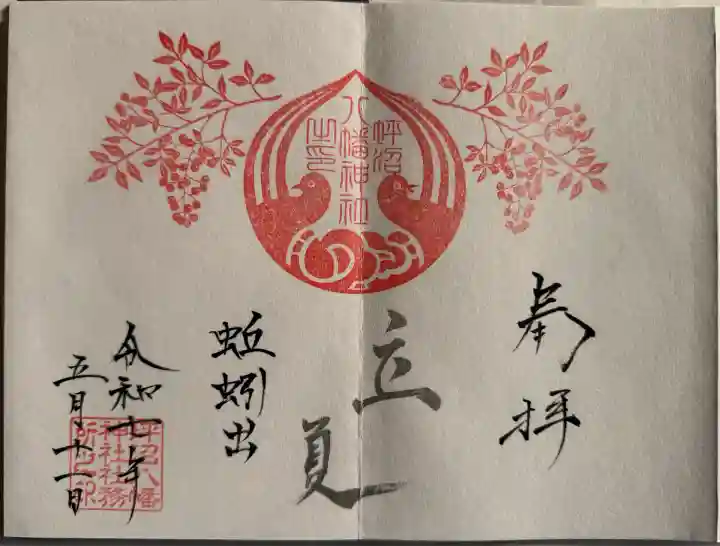 坪沼
八幡神社
之印
奉拝
立夏
蚯蚓出
令和七年
五月十一日
坪沼八幡
神社社務
所之印